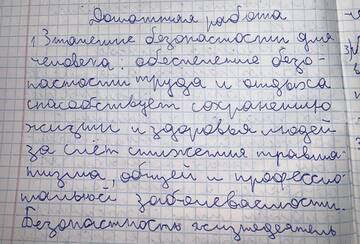 Домашняя работа
1. Значение безопасности для
человека: обеспечение безо-
пастности труда и отдыха
способствует сохранению
жизни и здоровья людей
за счёт снижения травма-
тизма, общей и профессио-
нальной заболеваемости.
Безопастность жизнедеятель